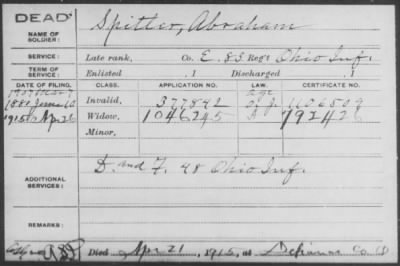 DEAD
NAME OF SOLDIER: Spitler, Abraham
SERVICE: Late rank, Co. E. 83 Reg't Ohio Inf.
TERM OF SERVICE: Enlisted , 1 Discharged , 1
DATE OF FILING. CLASS. APPLICATION NO. LAW. CERTIFICATE NO.
1881 June 10 Invalid, 377842 1106509
1915 Apr 26 Widow, 1046245 792426
Minor,
ADDITIONAL SERVICES: D. and F. 48 Ohio Inf.
REMARKS:
Died Apr 21, 1915, at Defiance Co O